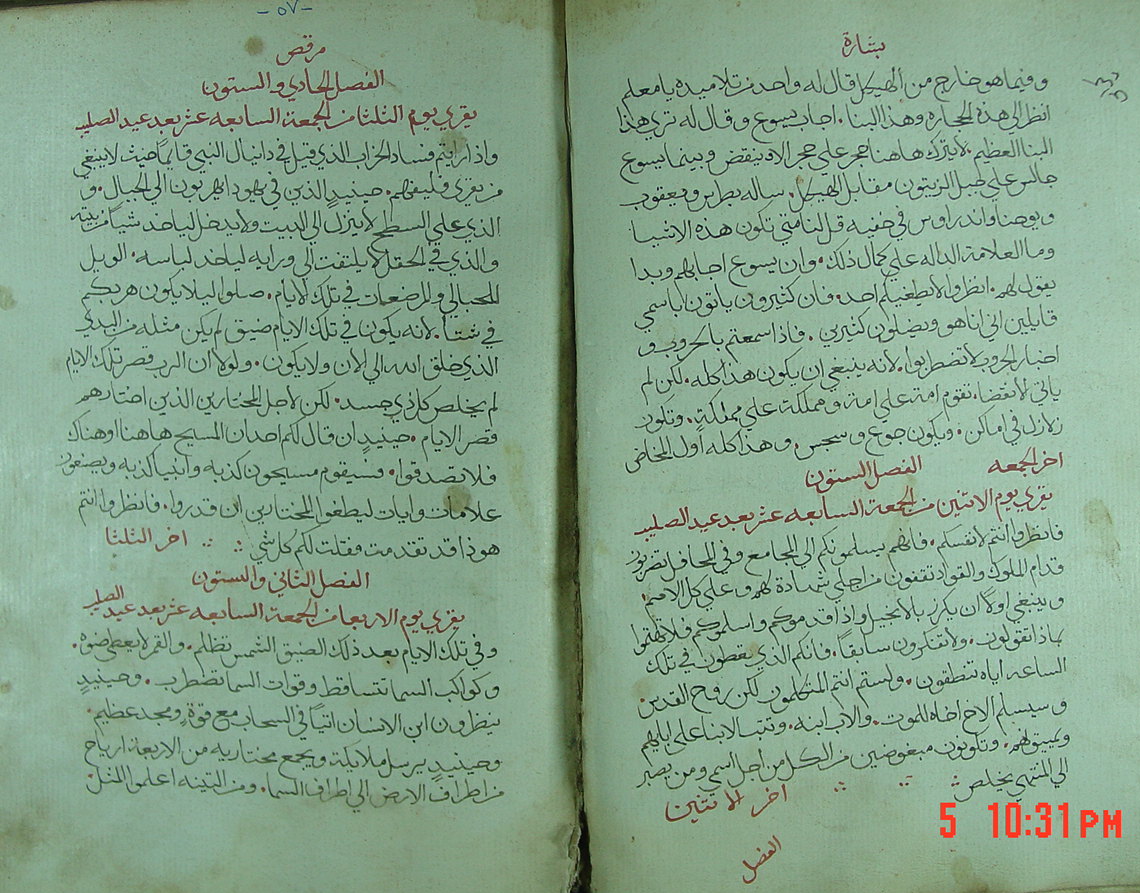 بشارة
وفيما هو خارج من الهيكل قال له واحد من تلاميذه يا معلم
انظر الى هذه الحجاره وهذا البنا. اجاب يسوع وقال له ترى هذا
البنا العظيم. لا يترك هاهنا حجر على حجر الا وينقض وبينما يسوع
جالس على جبل الزيتون مقابل الهيكل. ساله بطرس ويعقوب
ويوحنا واندراوس في خفيه قل لنا متى تكون هذه الاشيا
وما العلامة الداله على كمال ذلك. وان يسوع اجابهم وبدا
يقول لهم. انظروا لا يطغيكم احد. فان كثيرون ياتون باسمي
قايلين اني انا هو ويضلون كثيرين. فاذا سمعتم بالحروب و
اخبار الحروب لا تضطربوا. لانه ينبغي ان يكون هذا كله. لكن لم
ياتى الانقضا. تقوم امة على امة ومملكة على مملكة. وتكون
زلازل في اماكن. ويكون جوع وسجس. وهذا كله اول المخاض
اخر الجمعه الفصل الستون
يقرى يوم الاتنين من الجمعة السابعه عشر بعد عيد الصليب
فانظروا انتم لانفسكم. فانهم يسلمونكم الى المجامع وفي المحافل تضربون
قدام الملوك والقواد تقفون من اجلي شهادة لهم وعلى كل الامم.
وينبغي اولاً ان يكرز بالانجيل واذا قدموكم واسلموكم فلا تهتموا
بماذا تقولون. ولا تفكرون سابقاً. فانكم الذي يعطون في تلك
الساعه اياه تنطقون. ولستم انتم المتكلمون لكن روح القدس.
وسيسلم الاخ اخاه للموت. والاب ابنه. وتثب الابنا على ابايهم
ويميتوهم. وتكونون مبغوضين من الكل من اجل اسمي ومن يصبر
الى المنتهى يخلص
اخر الاتنين
الفصل
-٥٧-
مرقص
الفصل الحادي والستون
يقرى يوم الثلثا من الجمعة السابعه عشر بعد عيد الصليب
واذا رايتم فساد الخراب الذي قيل في دانيال النبي قايماً حيث لا ينبغي
من يقرى فليفهم. حينيدٍ الذين في يهودا يهربون الى الجبال. و
الذي على السطح لا ينزل الى البيت ولا يدخل لياخد شياً من بيته
والذي في الحقل لا يلتفت الى ورايه لياخد لباسه. الويل
للحبالى والمرضعات في تلك الايام. صلوا ليلا يكون هربكم
في شتاً. لانه يكون في تلك الايام ضيق لم يكن مثله من البدي
الذي خلق الله الى الان ولا يكون. ولولا ان الرب قصر تلك الايام
لم يخلص كل ذي جسد. لكن لاجل المختارين الذين اختارهم
قصر الايام. حينيدٍ ان قال لكم احد ان المسيح هاهنا او هناك
فلا تصدقوا. فسيقوم مسيحون كذبه وانبيا كذبه ويصنعون
علامات وايات ليطغوا المختارين ان قدروا. فانظروا انتم
هوذا قد تقدمت فقلت لكم كل شي اخر الثلثا
الفصل الثاني والستون
يقرى يوم الاربعا من الجمعة السابعه عشر بعد عيد الصليب
وفي تلك الايام بعد ذلك الضيق الشمس تظلم. والقمر لا يعطى ضوه.
وكواكب السما تتساقط وقوات السما تضطرب. وحينيدٍ
ينظرون ابن الانسان اتياً في السحاب مع قوة ومجد عظيم.
وحينيدٍ يرسل ملايكته ويجمع مختاريه من الاربعة ارياح
من اطراف الارض الى اطراف السما. ومن التينه اعلموا المثل
5 10:31 PM